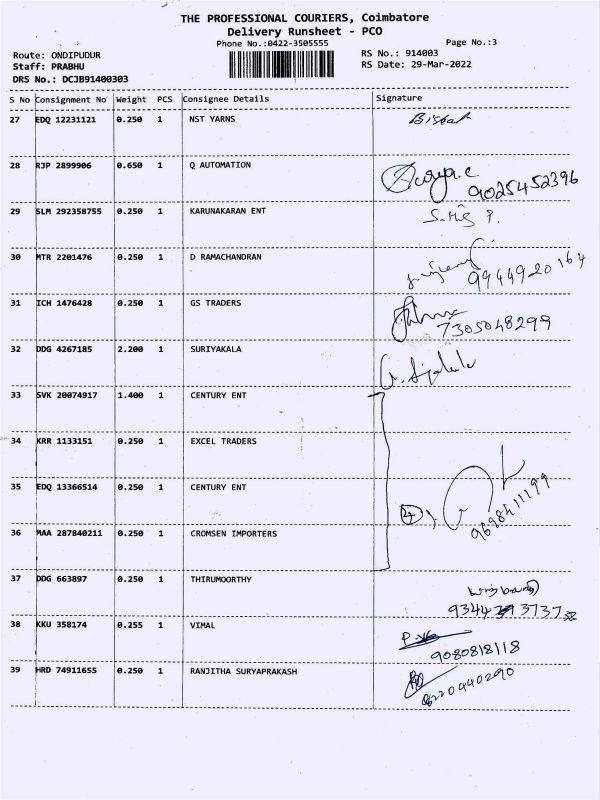 THE PROFESSIONAL COURIERS, Coimbatore
Delivery Runsheet - PCO
Phone No.:0422-3505555
Page No.:3
Route: ONDIPUDUR
RS No.: 914003
Staff: PRABHU
RS Date: 29-Mar-2022
DRS No.: DCJB91400303
S No Consignment No Weight PCS Consignee Details Signature
27 EDQ 12231121 0.250 1 NST YARNS
28 RJP 2899906 0.650 1 Q AUTOMATION
9025452396
29 SLM 292358755 0.250 1 KARUNAKARAN ENT
30 MTR 2201476 0.250 1 D RAMACHANDRAN
9944920164
31 ICH 1476428 0.250 1 GS TRADERS
7305048299
32 DDG 4267185 2.200 1 SURIYAKALA
33 SVK 20074917 1.400 1 CENTURY ENT
34 KRR 1133151 0.250 1 EXCEL TRADERS
35 EDQ 13366514 0.250 1 CENTURY ENT
4
9698411199
36 MAA 287840211 0.250 1 CROMSEN IMPORTERS
37 DDG 663897 0.250 1 THIRUMOORTHY
38 KKU 358174 0.255 1 VIMAL
9080818118
39 HRD 74911655 0.250 1 RANJITHA SURYAPRAKASH